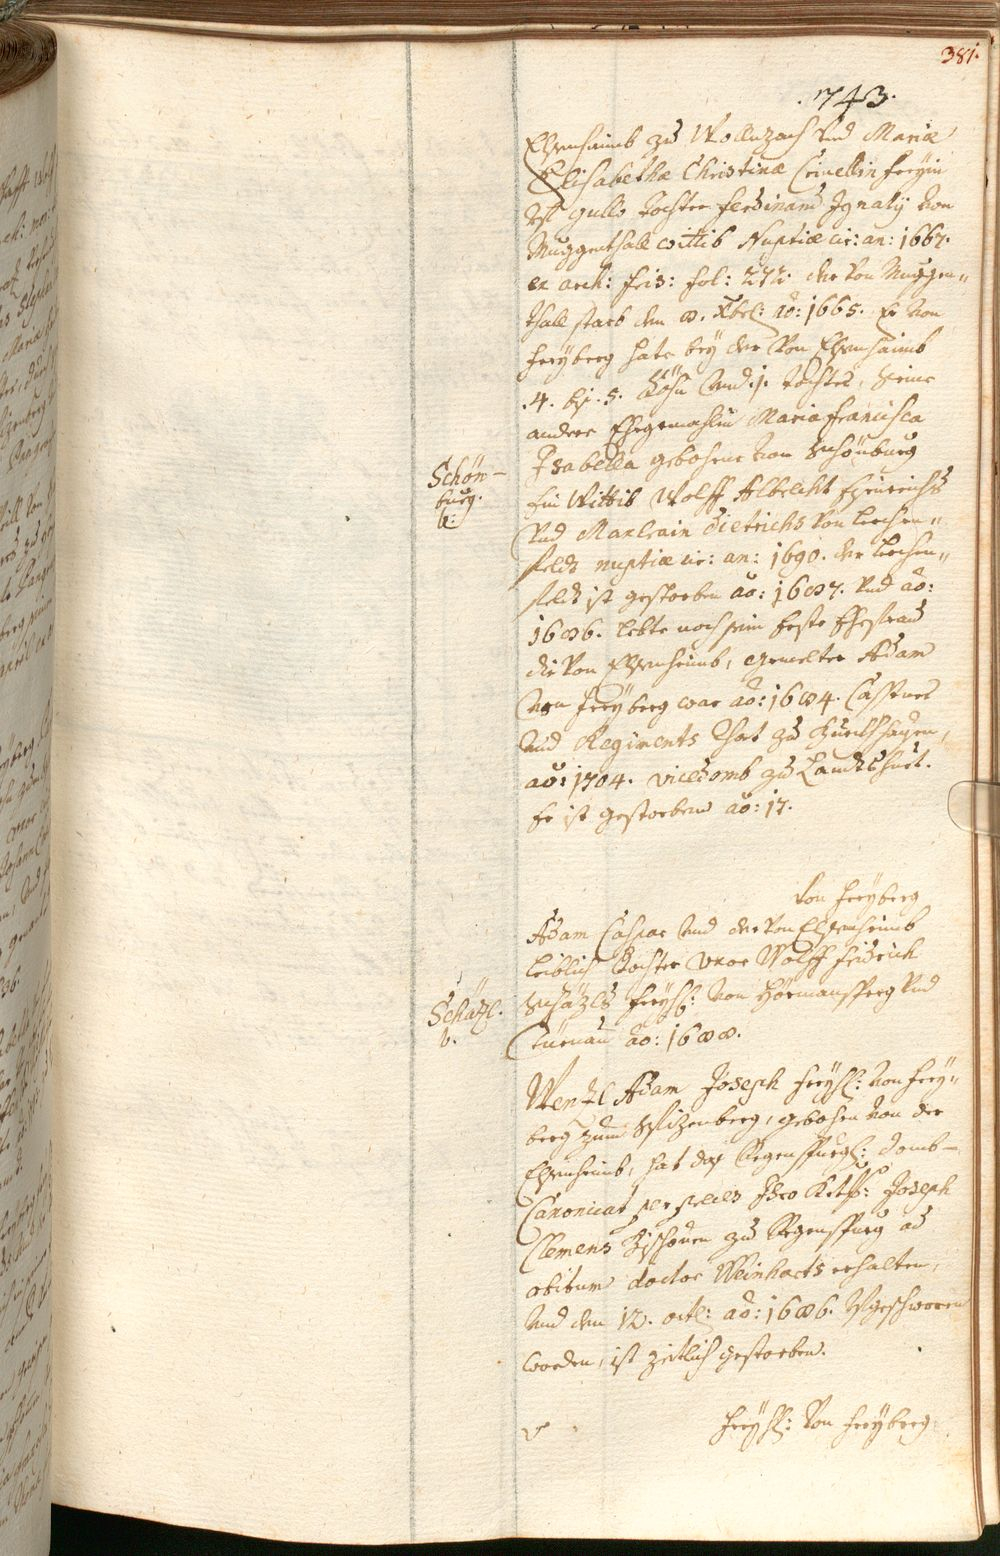 381.
.743.
Elsenhaimb zu Wollnzach und Mariæ
Elisabethæ Christinæ Crivellin freyin
gullo Tochter Ferdinand Ignatÿ von
Muggenthall wittib Nuptiæ cir: an: 1667.
ex arch: fris: fol: 272. der von Muggen-
thall starb den 8. Xbr: ao: 1665. Er von
Freyberg hate beÿ der von Elsenhaimb
.4. bis .5. Söhn und .1. Tochter, seine
andere Ehegemahlin Maria Francisca
Isabella gebohrne von Schönburg
Schön-
burg.
ein Wittib Wolff Albrecht Heinrichs
und Maxlrain Dietrichs von Lerchen-
feldt nuptiæ cir: an: 1690. der Lerchen-
feldt ist gestorben ao: 1687. und ao:
1686. lebte noch sein erste Ehefrau
die von Elsenhaimb, gemelter Adam
von Freÿberg war ao: 1684. Castner
und Regiments Rhat zu Burckhausen,
ao: 1704. vicedomb zu Landtshuet.
Er ist gestorben ao: 17.
von Freÿberg
Adam Caspar und der von Elsenhaimb
leiblich Tochter uxor Wolff Fridrich
Schäzl.
v.
Schäzls Freyh: von Hörmansperg und
Türnau ao: 1688.
Wenzl Adam Joseph Freyh: von Frey-
berg zum Spizenberg, gebohrn von der
Elsenhaimb, hat das Regenspurg: Domb-
Canonicat per preces Joseph
Clemens Bischoven zu Regenspurg ad
obitum doctor Weinharts erhalten,
und den 12. oct: ao: 1686. geschworen
worden, ist zeitlich gestorben.
Freyh: von Freyberg